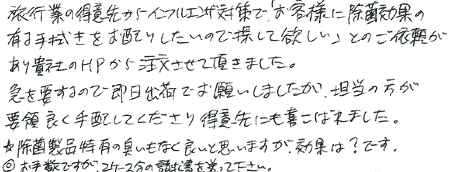 旅行業の得意先からインフルエンザ対策で「お客様に除菌効果の
有る手拭きをお配りしたいので探して欲しい」とのご依頼が
あり貴社のHPから注文させて頂きました。
急を要するので即日出荷でお願いしましたが、担当の方が
要領良く手配してくださり得意先にも喜こばれました。
☆除菌製品特有の臭いもなく良いと思いますが、効果は？です。
◎お手数ですが、2ケース分の請求書を送って下さい。